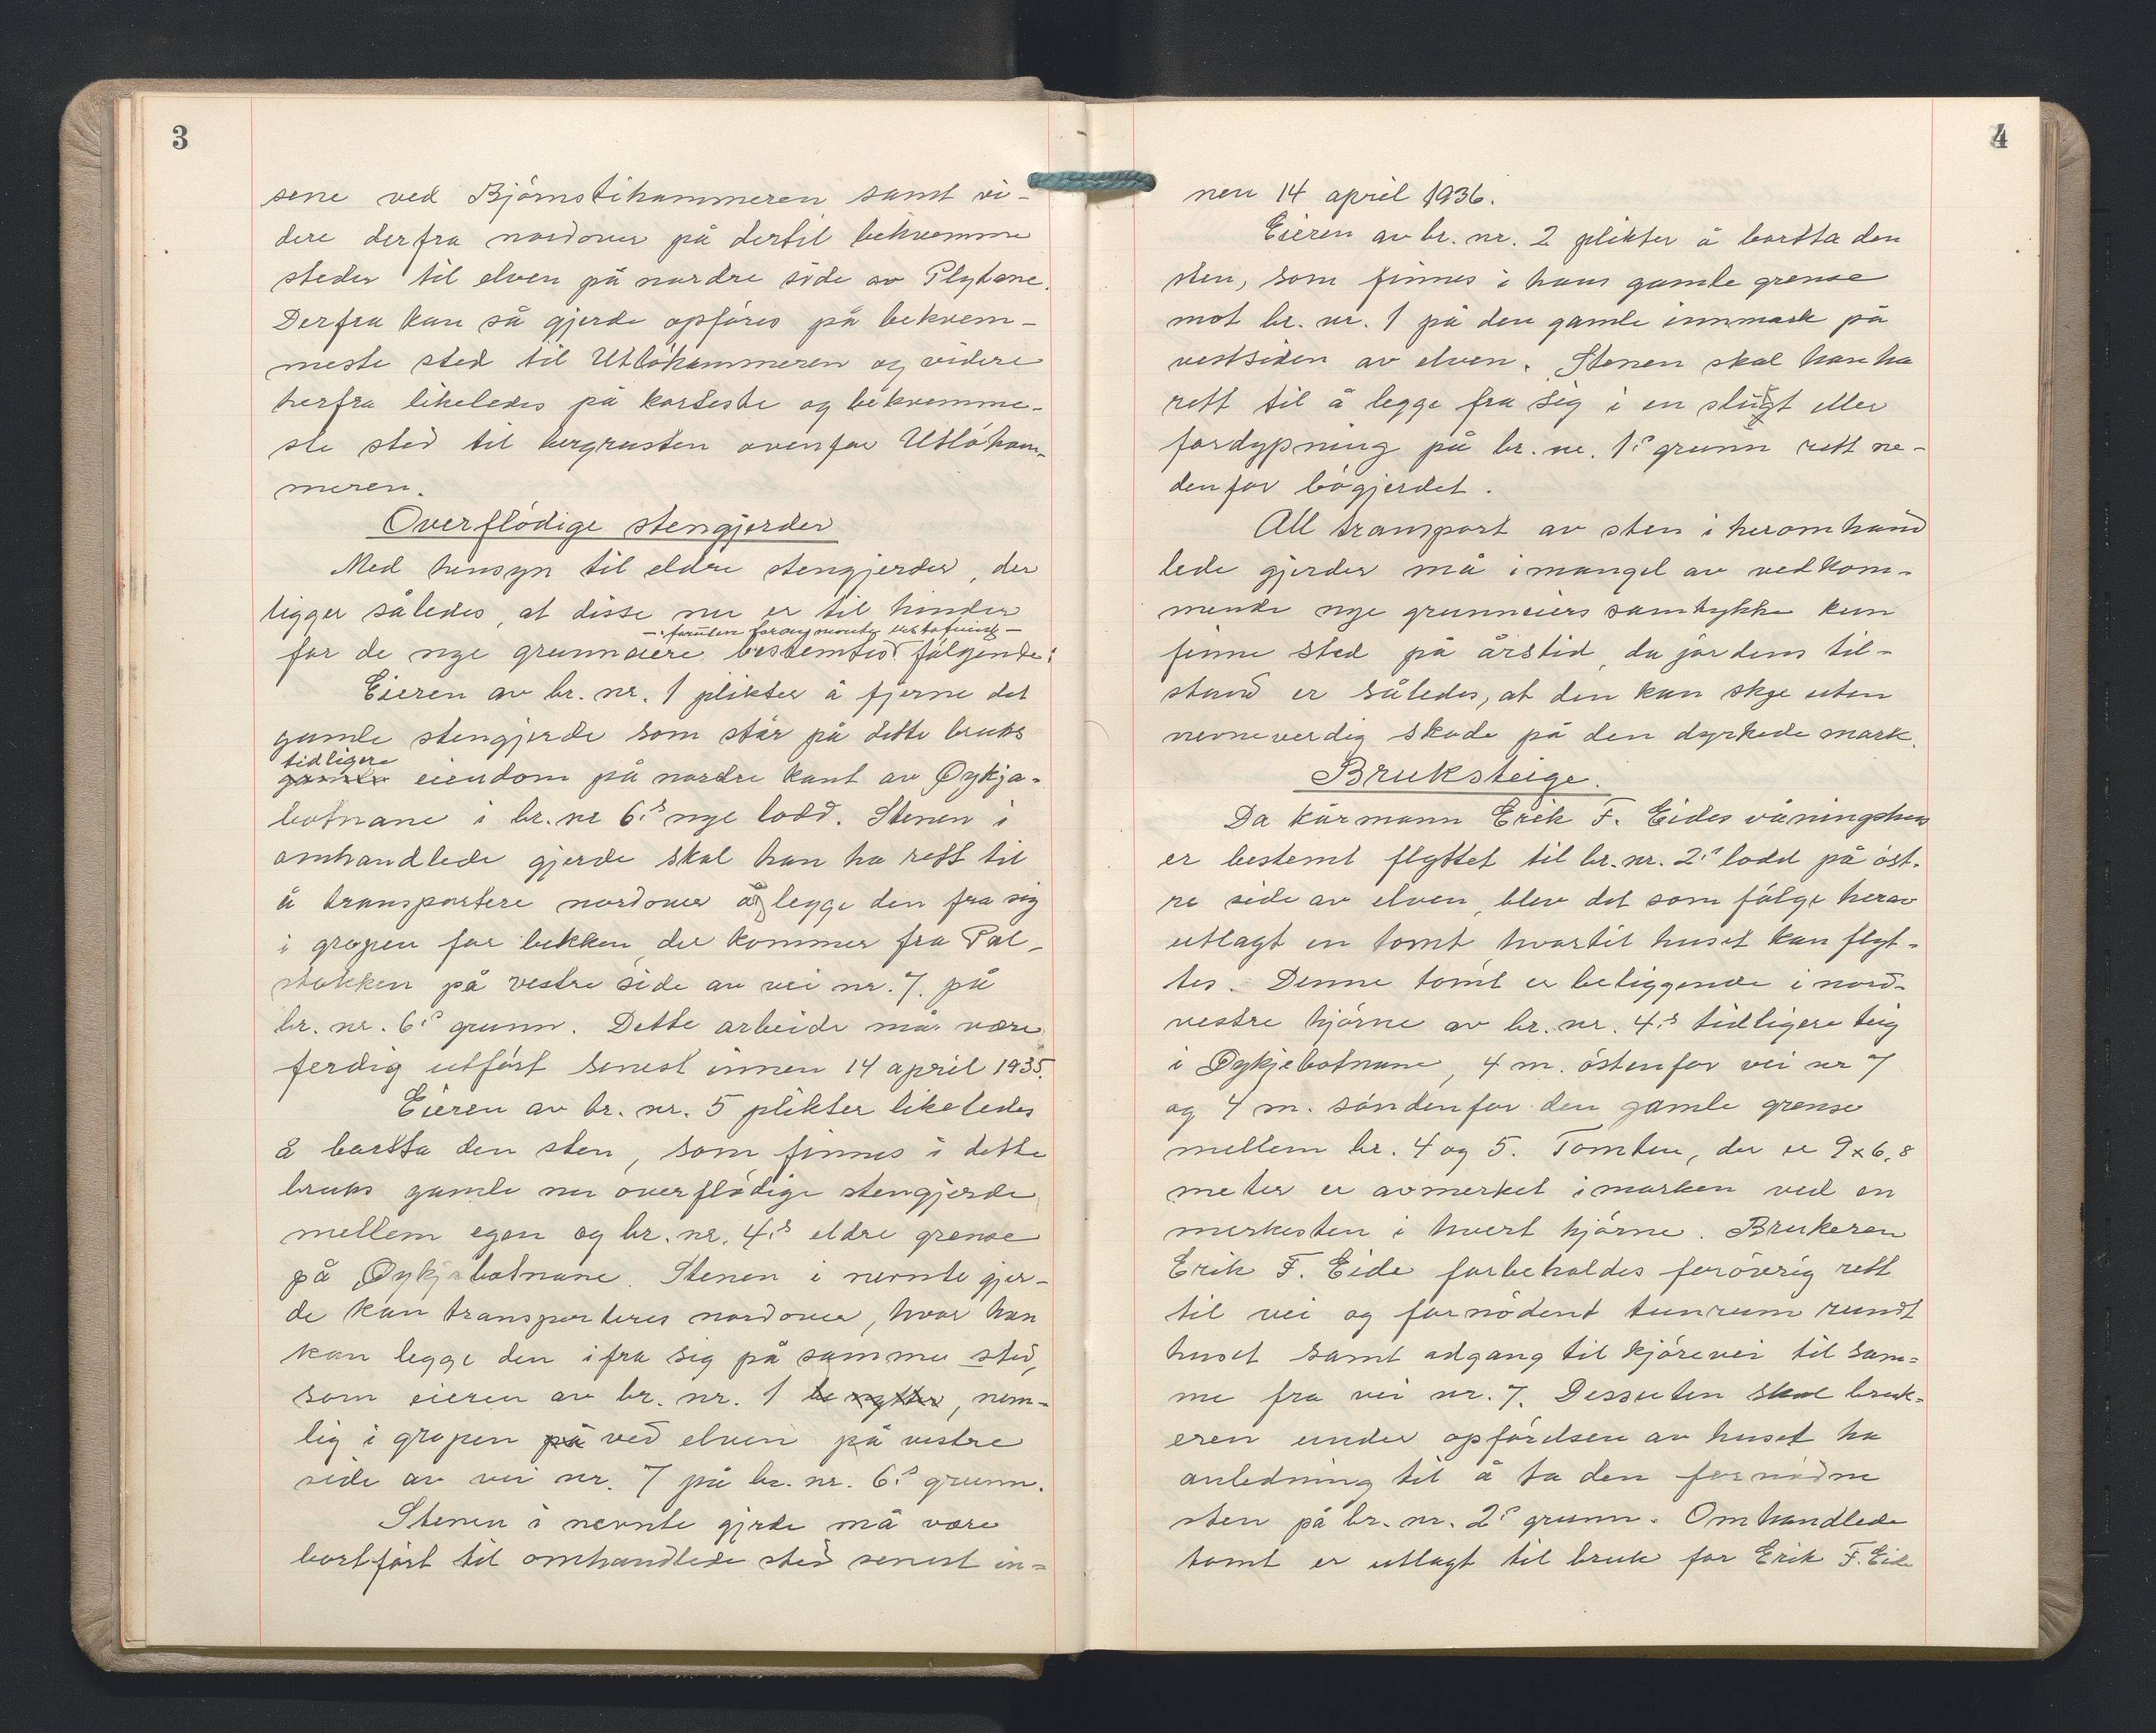 3
sene ved Bjørnstihammeren samt vi-
dere derfra nordover på dertil bekvemme
steder til elven på nordre side av Plytane.
Derfra kan så gjerde opføres på bekvem-
meste sted til Utløhammeren og videre
herfra likeledes på korteste og bekvemme-
ste sted til bergrusten ovenfor Utløham-
meren.
Overflødige stengjerder
Med hensyn til eldre stengjerder, der
ligger således, at disse nu er til hinder
-: foruten foranynevnte utskifting -
for de nye grunneiere bestemtes følgende:
Eieren av br. nr. 1 plikter å fjerne det
gamle stengjerde som står på dette bruks
tidligere
gamle eiendom på nordre kant av Øykja-
botnane i br. nr 6:s nye lodd. Stenen i
omhandlede gjerde skal han ha rett til
å transportere nordover å legge den fra sig
i gropen for bekken, der kommer fra Pal-
stokken på vestre side av vei nr. 7. på
br. nr. 6:s grunn. Dette arbeide må være
ferdig utført senest innen 14 april 1935.
Eieren av br. nr. 5 plikter likeledes
å bortta den sten, som finnes i dette
bruks gamle nu overflødige stengjerde
mellem egen og br. nr. 4:s eldre grense
på Øykjabotnane. Stenen i nevnte gjer-
de kan transporteres nordover, hvor han
kan legge den ifra sig på samme sted,
som eieren av br. nr. 1 benytter, nem-
lig i gropen på ved elven på vestre
side av vei nr. 7 på br. nr. 6:s grunn.
Stenen i nevnte gjerde må være
bortført til omhandlede sted senest in-
4
nen 14 april 1936.
Eieren av br. nr. 2 plikter å bortta den
sten, som finnes i hans gamle grense
mot br. nr. 1 på den gamle innmark på
vestsiden av elven. Stenen skal han ha
rett til å legge fra sig i en slugt eller
fordypning på br. nr. 1:s grunn rett ne-
denfor bøgjerdet.
All transport av sten i heromhand
lede gjerder må i mangel av vedkom-
mende nye grunneiers samtykke kun
finne sted på årstid, da jordens til-
stand er således, at den kan skje uten
nevneverdig skade på den dyrkede mark.
Bruksteige.
Da kårmann Erik F. Eides våningshus
er bestemt flyttet til br. nr. 2:s lodd på øst-
re side av elven, blev det som følge herav
utlagt en tomt, hvortil huset kan flyt-
tes. Denne tomt er beliggende i nord-
vestre hjørne av br. nr. 4:s tidligere teig
i Øykjebotnane, 4 m. østenfor vei nr 7
og 4 m. søndenfor den gamle grense
mellem br. 4 og 5. Tomten, der er 9 x 6,8
meter er avmerket i marken ved en
merkesten i hvert hjørne. Brukeren
Erik F. Eide forbeholdes forøvrig rett
til vei og fornødent tunrum rundt
huset samt adgang til kjørevei til sam-
me fra vei nr. 7. Dessuten skal bruk-
eren under opførelsen av huset ha
anledning til å ta den fornødne
sten på br. nr. 2:s grunn. Omhandlede
tomt er utlagt til bruk for Erik F. Eide